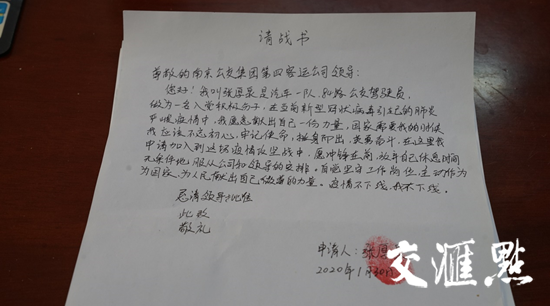 请战书
尊敬的南京公交集团第四客运公司领导:
您好!我叫张 是汽车一队 路公交驾驶员,
做为一名入党积极分子,在当前新型冠状病毒引起的肺炎
严峻疫情中,我愿意献出自己一份力量,国家需要我的时候
我应该不忘初心,牢记使命,挺身而出,英勇奋斗,在这里我
申请加入到这场疫情攻坚战中,愿冲锋在前,放弃自己休息时间
无条件地服从公司和领导的安排。自愿坚守工作岗位,主动作为
为国家,为人民献出自己微薄的力量。疫情不下线,我不下线。
恳请领导批准
此致
敬礼
申请人:张
2020年1月30日
交滙點